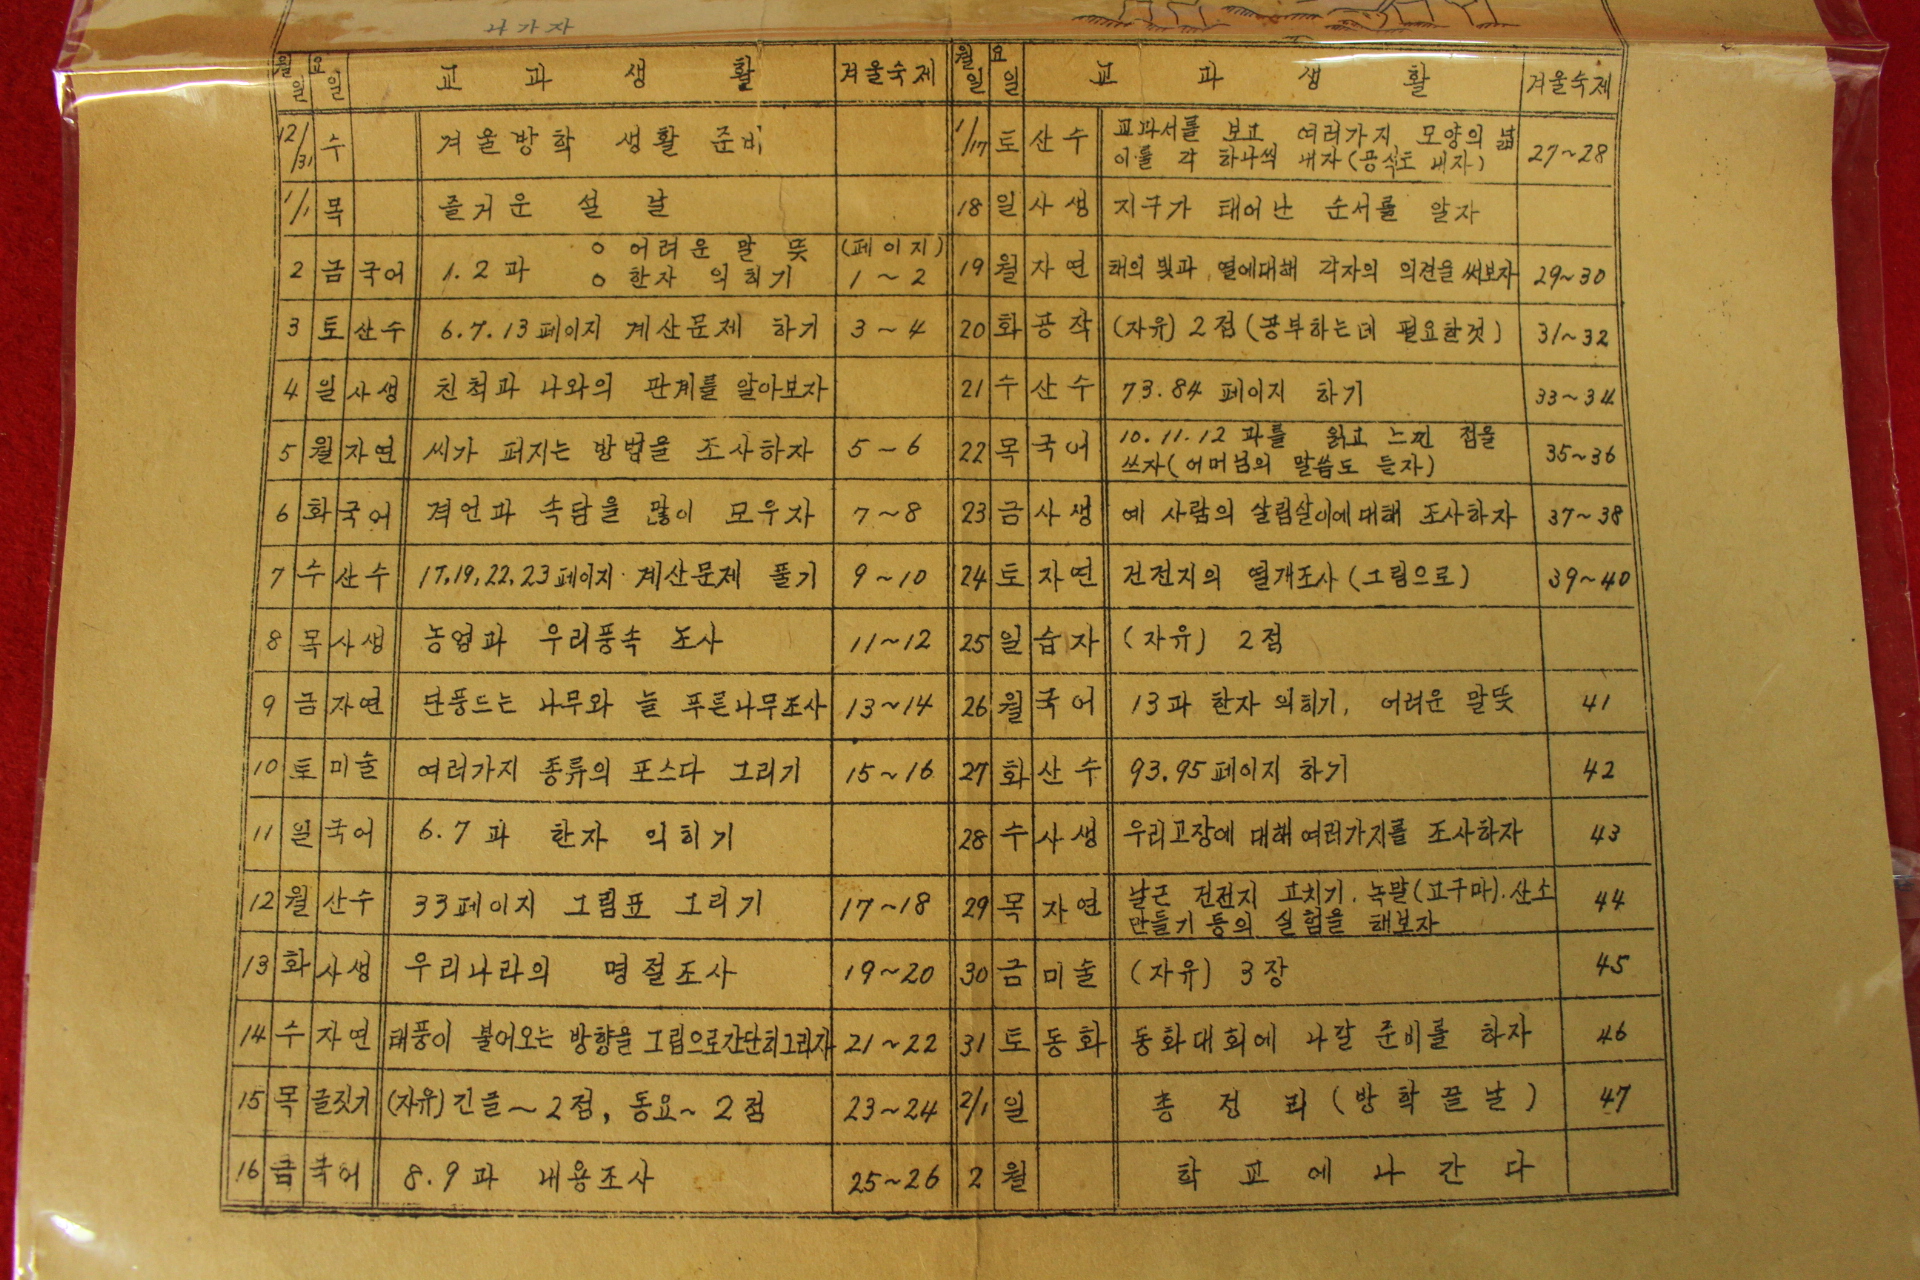 나가자
월일 요일 교과생활 겨울숙제 월일 요일 교과생활 겨울숙제
12/31 수 겨울방학 생활 준비
1/1 목 즐거운 설 날
2 금 국어 1.2과 o 어려운 말 뜻 (페이지)
o 한자 익히기 1~2
3 토 산수 6.7.13페이지 계산문제 하기 3~4
4 일 사생 친척과 나와의 관계를 알아보자
5 월 자연 씨가 퍼지는 방법을 조사하자 5~6
6 화 국어 격언과 속담을 많이 모우자 7~8
7 수 산수 17,19,22,23페이지 계산문제 풀기 9~10
8 목 사생 농업과 우리풍속 조사 11~12
9 금 자연 단풍드는 나무와 늘 푸른나무조사 13~14
10 토 미술 여러가지 종류의 포스다 그리기 15~16
11 일 국어 6.7과 한자 익히기
12 월 산수 33페이지 그림표 그리기 17~18
13 화 사생 우리나라의 명절조사 19~20
14 수 자연 태풍이 불어오는 방향을 그림으로간단히그리자 21~22
15 목 글짓기 (자유) 긴글~2점, 동요~2점 23~24
16 금 국어 8.9과 내용조사 25~26
1/17 토 산수 교과서를 보고 여러가지 모양의 넓
이를 각 하나씩 내자(공식도 내자) 27~28
18 일 사생 지구가 태어난 순서를 알자
19 월 자연 해의 빛과 열에대해 각자의 의견을 써보자 29~30
20 화 공작 (자유) 2점(공부하는데 필요한것) 31~32
21 수 산수 73.84 페이지 하기 33~34
22 목 국어 10.11.12 과를 읽고 느낀 점을
쓰자(어머님의 말씀도 듣자) 35~36
23 금 사생 예 사람의 살림살이에대해 조사하자 37~38
24 토 자연 건전지의 열개조사(그림으로) 39~40
25 일 습자 (자유) 2점
26 월 국어 13과 한자 익히기, 어려운 말뜻 41
27 화 산수 93.95페이지 하기 42
28 수 사생 우리고장에 대해 여러가지를 조사하자 43
29 목 자연 낡은 건전지 고치기. 녹말(고구마).산소
만들기 등의 실험을 해보자 44
30 금 미술 (자유) 3장 45
31 토 동화 동화대회에 나갈 준비를 하자 46
2/1 일 총 정 리 (방학 끝날) 47
2 월 학 교 에 나 간 다